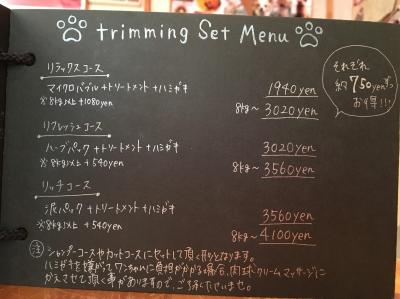 trimming Set Menu
それぞれ
約750yenずつ
お得!!!
リラックスコース
マイクロバブル+トリートメント+ハミガキ 1940yen
※8kg以上+1080yen 8kg~3020yen
リフレッシュコース
ハーブパック+トリートメント+ハミガキ 3020yen
※8kg以上+540yen 8kg~3560yen
リッチコース
泥パック+トリートメント+ハミガキ 3560yen
※8kg以上+540yen 8kg~4100yen
注 シャンプーコースやカットコースにセットして頂く形となります。
ハミガキを嫌がってワンちゃんに負担がかかる場合、肉球クリームマッサージに
かえさせて頂く事がありますので、ご了承くださいませ。